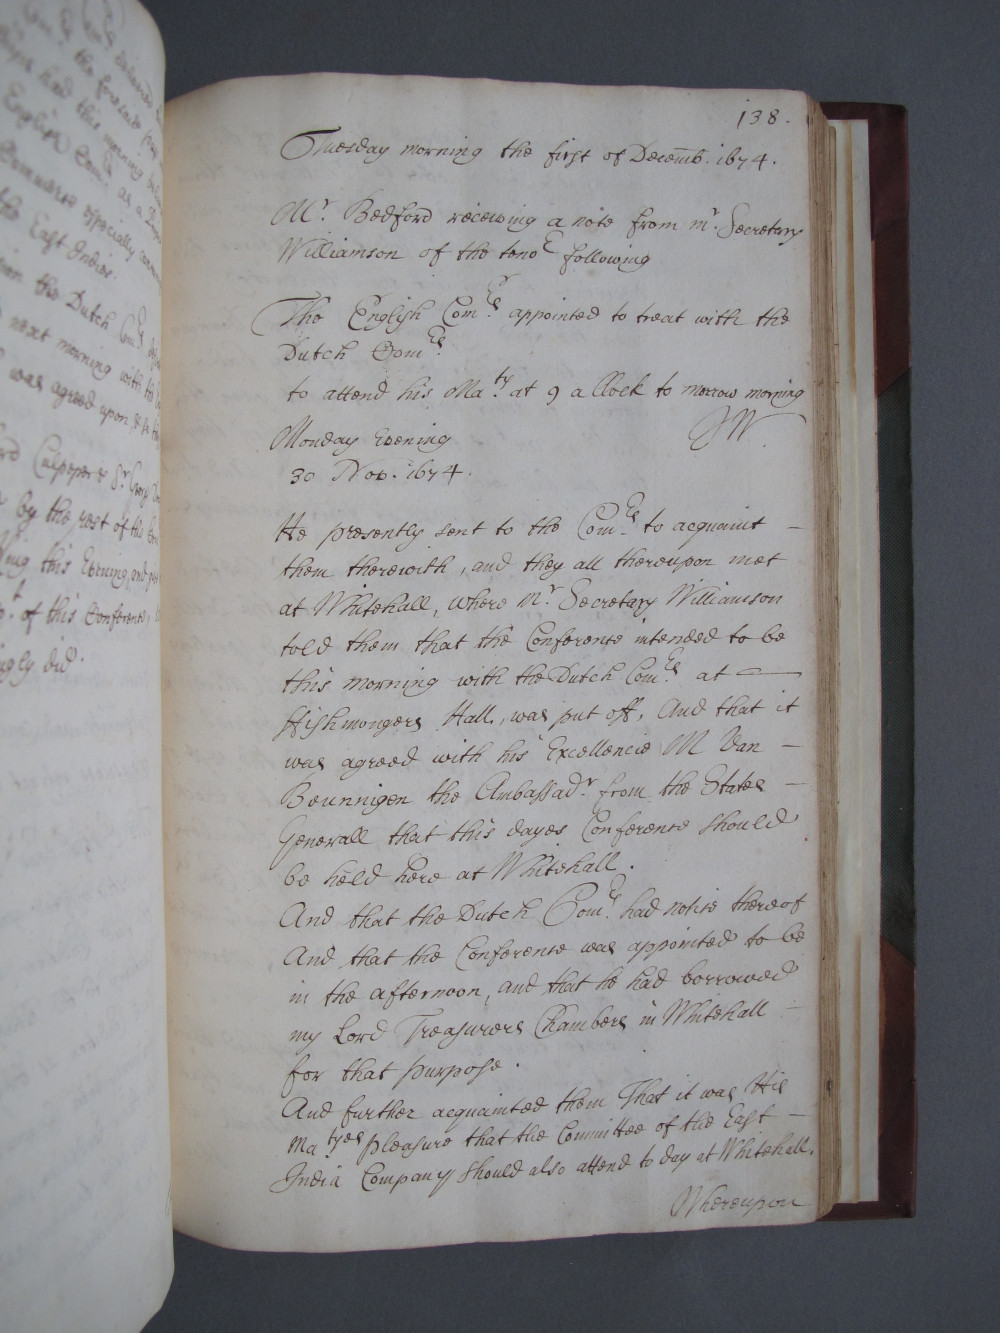 138.
Tuesday morning the first of Decemb. 1674.
Mr. Bedford receiving a note from mr. Secretary
Williamson of the tenor following
The English Comrs. appointed to treat with the
Dutch Comrs.
to attend his Maty. at 9 a Clock to morrow morning
JW
Monday Evening
30 Nov. 1674.
He presently sent to the Comrs. to acquaint
them therewith, and they all thereupon met
at Whitehall, where mr. Secretary Williamson
told them that the Conference intended to be
this morning with the Dutch Comrs. at
ffishmongers Hall, was put off, And that it
was agreed with his Excellencie M Van
Beunnigen the Ambassadr. from the States
Generall that this dayes Conference should
be held here at Whitehall.
And that the Dutch Comrs. had notice thereof
And that the Conference was appointed to be
in the afternoon, and that he had borrowed
my Lord Treasurers Chambers in Whitehall
for that purpose.
And further acquainted them That it was His
Matyes pleasure that the Committee of the East
India Company should also attend to day at Whitehall.
Whereupon
the foresaid
had this morning
English Comrs. as a
Commerce especially
the East Indies.
the Dutch Comrs.
next morning with
was agreed upon,
Culpeper & Sr. George
by the rest of the
this Evening, and
of this Conference,
did.